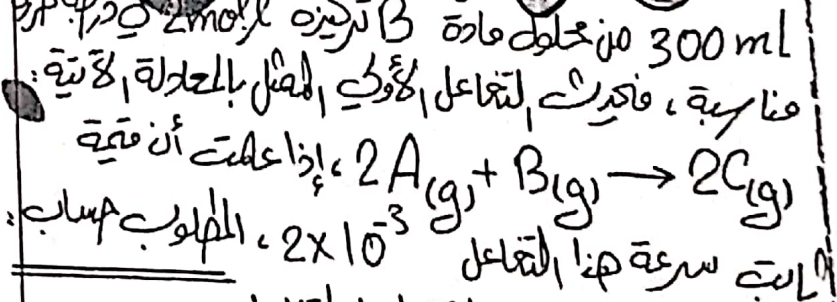 300 ml من محلول مادة B تركيزه 2mol.l
مناسبة، فيحدث التفاعل الأولي الممثل بالمعادلة الآتية:
2A(g) + B(g) → 2C(g)، إذا علمت أن قيمة
ثابت سرعة هذا التفاعل 2×10⁻³، المطلوب حساب: